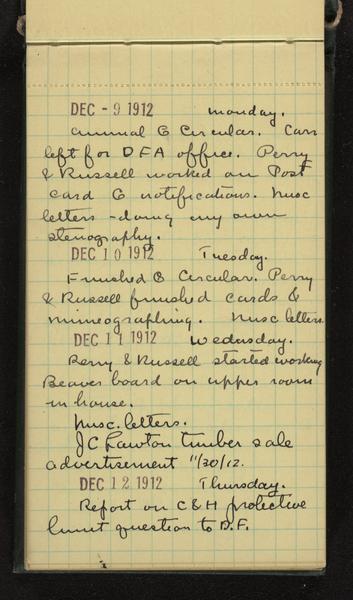 DEC - 9 1912 Monday.
Annual G Circular. Carr
left for DFA office. Perry
& Russell worked on Post
card G notifications. Misc
letters - doing my own
stenography.
DEC 10 1912 Tuesday.
Finished G Circular. Perry
& Russell finished cards &
mimeographing. Misc letters.
DEC 11 1912 Wednesday.
Perry & Russell started working
Beaver board on upper room
in house.
Misc. letters.
JC Lawton timber sale
advertisement 11/30/12.
DEC 12 1912 Thursday.
Report on C&H protective
limit question to D.F.